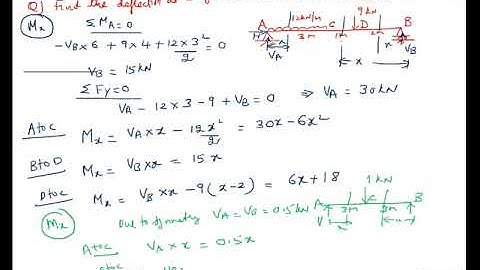 Q) Find the deflection at
Mx ΣMA=0
-VB×6 + 9×4 + 12×3²/2 = 0
VB = 15kN
ΣFy=0
VA - 12×3 - 9 + VB = 0 ⇒ VA = 30kN
12kN/m 9kN
A C D B
H x 3m 1m 2m x
VA x VB
AtoC Mx = VA×x - 12x²/2 = 30x - 6x²
BtoD Mx = VB×x = 15x
DtoC Mx = VB×x - 9(x-2) = 6x+18
Mx Due to symmetry VA = VB = 0.5kN
1kN
A B
3m 3m
V x
AtoC VA × x = 0.5x